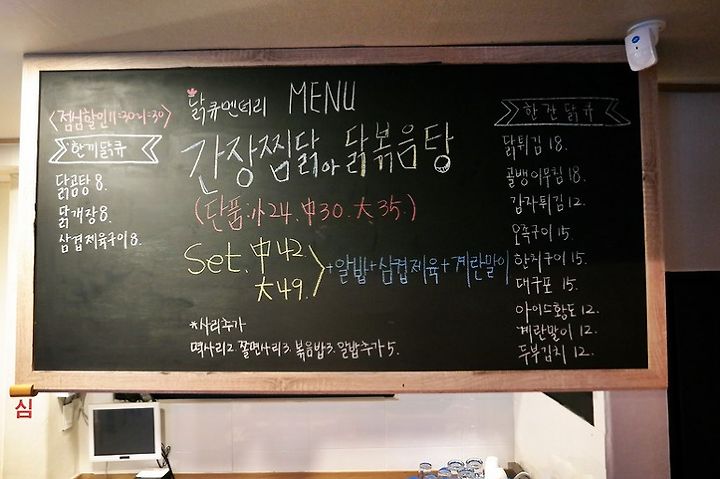 닭큐멘터리 MENU
<점심할인 11:30~1:30>
한끼닭큐
닭곰탕 8.
닭개장 8.
삼겹제육구이 8.
간장찜닭 or 닭볶음탕
(단품: 小 24. 中 30. 大 35.)
Set. 中 42
大 49.
+알밥+삼겹제육+계란말이
*사리추가
떡사리 2. 쫄면사리 3. 볶음밥 3. 알밥추가 5.
한잔닭큐
닭튀김 18.
골뱅이무침 18.
감자튀김 12.
오족구이 15.
한치구이 15.
대구포 15.
아이스황도 12.
계란말이 12.
두부김치 12.
심